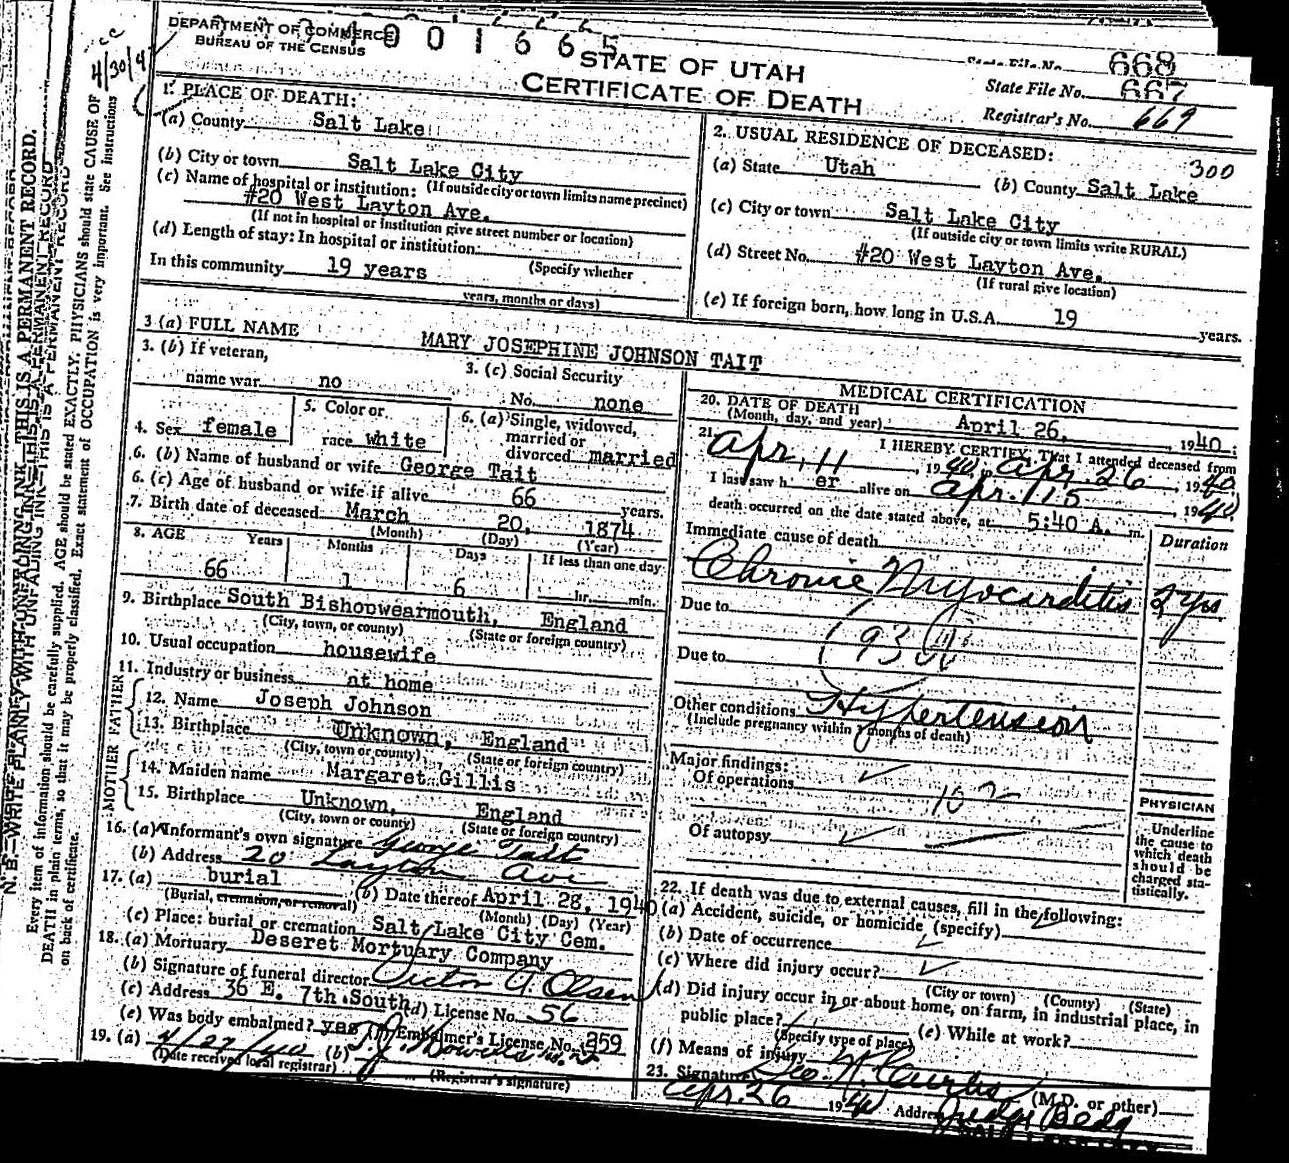 DEPARTMENT OF COMMERCE
BUREAU OF THE CENSUS
4001665
STATE OF UTAH
CERTIFICATE OF DEATH
State File No. 668
State File No. 667
Registrar's No. 669
4/30/4
N. B.—WRITE PLAINLY WITH UNFADING INK—THIS IS A PERMANENT RECORD.
Every item of information should be carefully supplied. AGE should be stated EXACTLY. PHYSICIANS should state CAUSE OF
DEATH in plain terms, so that it may be properly classified. Exact statement of OCCUPATION is very important. See instructions
on back of certificate.
1. PLACE OF DEATH:
(a) County Salt Lake
(b) City or town Salt Lake City
(If outside city or town limits name precinct)
(c) Name of hospital or institution:
#20 West Layton Ave.
(If not in hospital or institution give street number or location)
(d) Length of stay: In hospital or institution:
(Specify whether
In this community 19 years
years, months or days)
2. USUAL RESIDENCE OF DECEASED:
300
(a) State Utah (b) County Salt Lake
(c) City or town Salt Lake City
(If outside city or town limits write RURAL)
(d) Street No. #20 West Layton Ave.
(If rural give location)
(e) If foreign born, how long in U.S.A. 19 years.
3 (a) FULL NAME MARY JOSEPHINE JOHNSON TAIT
3. (b) If veteran,
name war no
3. (c) Social Security
No. none
4. Sex female
5. Color or
race white
6. (a) Single, widowed,
married or
divorced married
6. (b) Name of husband or wife George Tait
6. (c) Age of husband or wife if alive 66 years.
7. Birth date of deceased March 20, 1874
(Month) (Day) (Year)
8. AGE Years Months Days If less than one day
66 1 6 hr. min.
9. Birthplace South Bishopwearmouth, England
(City, town, or county) (State or foreign country)
10. Usual occupation housewife
11. Industry or business at home
FATHER
12. Name Joseph Johnson
13. Birthplace Unknown, England
(City, town or county) (State or foreign country)
MOTHER
14. Maiden name Margaret Gillis
15. Birthplace Unknown, England
(City, town or county) (State or foreign country)
16. (a) Informant's own signature George Tait
(b) Address 20 Layton Ave
17. (a) burial (b) Date thereof April 28, 1940
(Burial, cremation, or removal) (Month) (Day) (Year)
(c) Place: burial or cremation Salt Lake City Cem.
18. (a) Mortuary Deseret Mortuary Company
(b) Signature of funeral director Victor A. Olsen
(c) Address 36 E. 7th South (d) License No. 56
(e) Was body embalmed? yes (f) Embalmer's License No. 359
19. (a) 4/27/40 (b)
(Date received local registrar) (Registrar's signature)
MEDICAL CERTIFICATION
20. DATE OF DEATH
(Month, day, and year) April 26, 1940
21. I HEREBY CERTIFY, That I attended deceased from
Apr. 11, 1940, to Apr. 26, 1940
I last saw h er alive on Apr. 1940
death occurred on the date stated above, at 5:40 A. m.
Immediate cause of death Duration
Chronic Myocarditis 2 yrs
Due to
93
Due to
Other conditions Hypertension
(Include pregnancy within 3 months of death)
Major findings:
Of operations
Of autopsy
PHYSICIAN
Underline
the cause to
which death
should be
charged sta-
tistically.
22. If death was due to external causes, fill in the following:
(a) Accident, suicide, or homicide (specify)
(b) Date of occurrence
(c) Where did injury occur?
(City or town) (County) (State)
(d) Did injury occur in or about home, on farm, in industrial place, in
public place? (e) While at work?
(Specify type of place)
(f) Means of injury
23. Signature Geo. N. Curtis (M.D. or other)
Apr. 26 1940 Address Judge Bldg